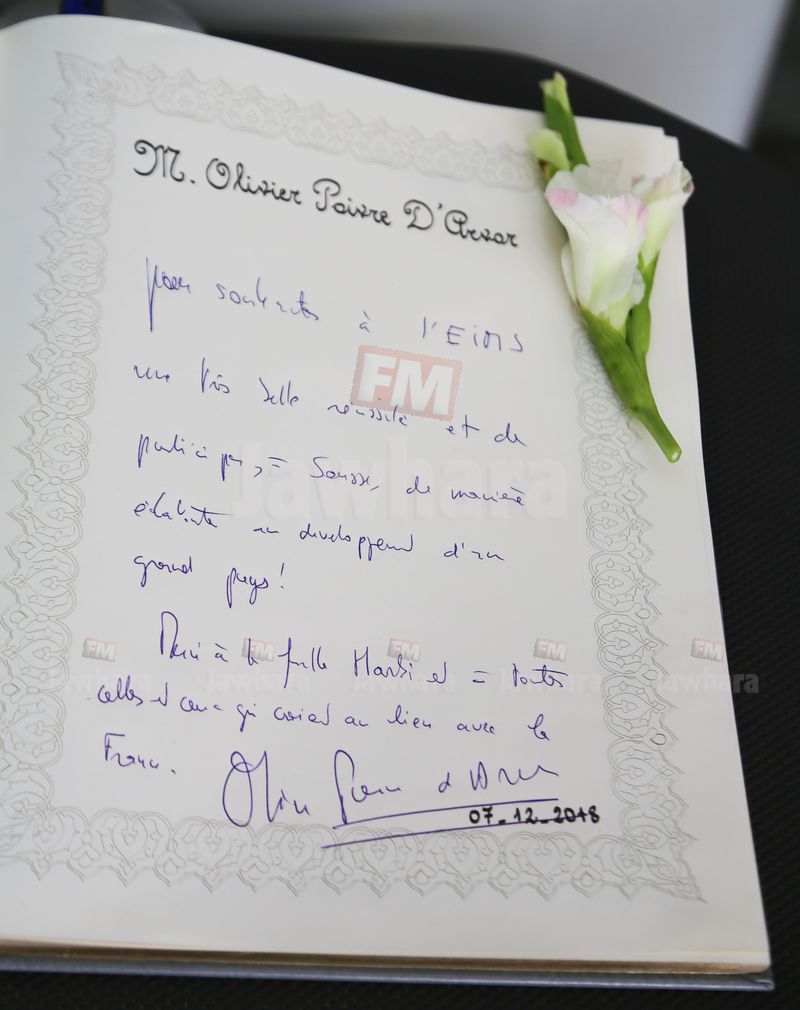 M. Olivier Poivre D'Arvor
pour souhaiter à l'EiMS
une très belle réussite et de
participer, à Sousse, de manière
éclatante au développement d'un
grand pays !
Merci à la famille et à toutes
celles et ceux qui croient au lien avec la
France.
Olivier Poivre d'Arvor
07_12_2018
FM
Jawhara
FM FM FM FM FM
Jawhara Jawhara Jawhara Jawhara Jawhara